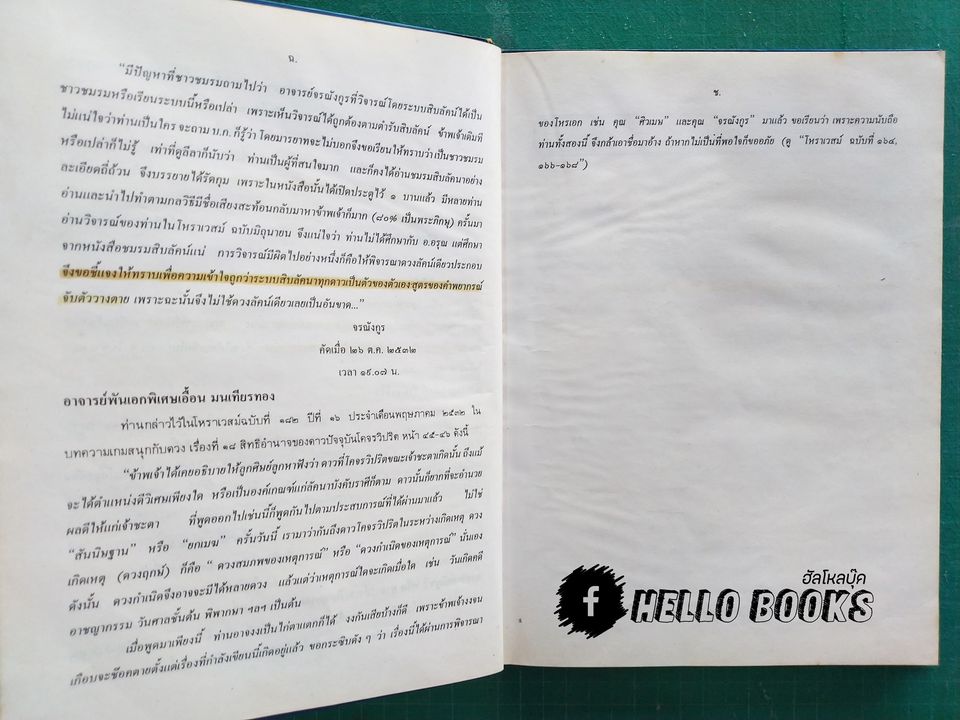 ฉ.
“มีปัญหาที่ชาวชมรมถามไปว่า อาจารย์จรณังกูรที่วิจารณ์โดยระบบสิบลัคน์ได้เป็น
ชาวชมรมหรือเรียนระบบนี้หรือเปล่า เพราะเห็นวิจารณ์ได้ถูกต้องตามตำรับสิบลัคน์ ข้าพเจ้าเดิมที
ไม่แน่ใจว่าท่านเป็นใคร จะถาม บ.ก. ก็รู้ว่า โดยมารยาทจะไม่บอกจึงขอเรียนให้ทราบว่า เป็นชาวชมรม
หรือเปล่าก็ไม่รู้ เท่าที่ดูลีลาก็นับว่า ท่านเป็นผู้ที่สนใจมาก และก็คงได้อ่านชมรมสิบลัคนาอย่าง
ละเอียดถี่ถ้วน จึงบรรยายได้รัดกุม เพราะในหนังสือนั้นได้เปิดประตูไว้ ๑ บานแล้ว มีหลายท่าน
อ่านและนำไปทำตามกลวิธีมีชื่อเสียงสะท้อนกลับมาหาข้าพเจ้าก็มาก (๘๐% เป็นพระภิกษุ) ครั้นมา
อ่านวิจารณ์ของท่านในโหราเวสม์ ฉบับมิถุนายน จึงแน่ใจว่า ท่านไม่ได้ศึกษากับ อ.อรุณ แต่ศึกษา
จากหนังสือชมรมสิบลัคน์แน่ การวิจารณ์มีผิดไปอย่างหนึ่งก็คือให้พิจารณาดวงลัคน์เดียวประกอบ
จึงขอชี้แจงให้ทราบเพื่อความเข้าใจถูกว่าระบบสิบลัคนาทุกดาวเป็นตัวของตัวเอง สูตรของคำพยากรณ์
จับตัววางตาย เพราะฉะนั้นจึงไม่ใช้ดวงลัคน์เดียวเลยเป็นอันขาด...”
จรณังกูร
คัดเมื่อ ๒๖ ต.ค. ๒๕๓๒
เวลา ๑๙.๐๗ น.
อาจารย์พันเอกพิเศษเอื้อน มนเทียรทอง
ท่านกล่าวไว้ในโหราเวสม์ฉบับที่ ๑๘๒ ปีที่ ๑๖ ประจำเดือนพฤษภาคม ๒๕๓๒ ใน
บทความเกมสนุกกับดวง เรื่องที่ ๑๘ สิทธิอำนาจของดาวปัจจุบันโคจรวิปริต หน้า ๔๕-๔๖ ดังนี้
“ข้าพเจ้าได้เคยอธิบายให้ลูกศิษย์ลูกหาฟังว่า ดาวที่โคจรวิปริตขณะเจ้าชะตาเกิดนั้น ถึงแม้
จะได้ตำแหน่งดีวิเศษเพียงใด หรือเป็นองค์เกณฑ์แก่ลัคนาบังคับราศีก็ตาม ดาวนั้นก็ยากที่จะอำนวย
ผลดีให้แก่เจ้าชะตา ที่พูดออกไปเช่นนี้ก็พูดกันไปตามประสบการณ์ที่ได้ผ่านมาแล้ว ไม่ใช่
“สันนิษฐาน” หรือ “ยกเมฆ” ครั้นวันนี้ เรามาว่ากันถึงดาวโคจรวิปริตในระหว่างเกิดเหตุ ดวง
เกิดเหตุ (ดวงฤกษ์) ก็คือ “ ดวงสมภพของเหตุการณ์” หรือ “ดวงกำเนิดของเหตุการณ์” นั่นเอง
ดังนั้น ดวงกำเนิดจึงอาจจะมีได้หลายดวง แล้วแต่ว่าเหตุการณ์ใดจะเกิดเมื่อใด เช่น วันเกิดคดี
อาชญากรรม วันศาลชั้นต้น พิพากษา ฯลฯ เป็นต้น
เมื่อพูดมาเพียงนี้ ท่านอาจงงเป็นไก่ตาแตกก็ได้ งงกันเสียบ้างก็ดี เพราะข้าพเจ้างงจน
เกือบจะช๊อคตายตั้งแต่เรื่องที่กำลังเขียนนี้เกิดอยู่แล้ว ขอกระซิบดัง ๆ ว่า เรื่องนี้ได้ผ่านการพิจารณา
ช.
ของโหรเอก เช่น คุณ “ศิวเมษ” และคุณ “จรณังกูร” มาแล้ว ขอเรียนว่า เพราะความนับถือ
ท่านทั้งสองนี้ จึงกล้าเอาชื่อมาอ้าง ถ้าหากไม่เป็นที่พอใจก็ขออภัย (ดู “โหราเวสม์ ฉบับที่ ๑๖๔,
๑๖๖-๑๖๘”)
ฮัลโหลบุ๊ค
f HELLO BOOKS